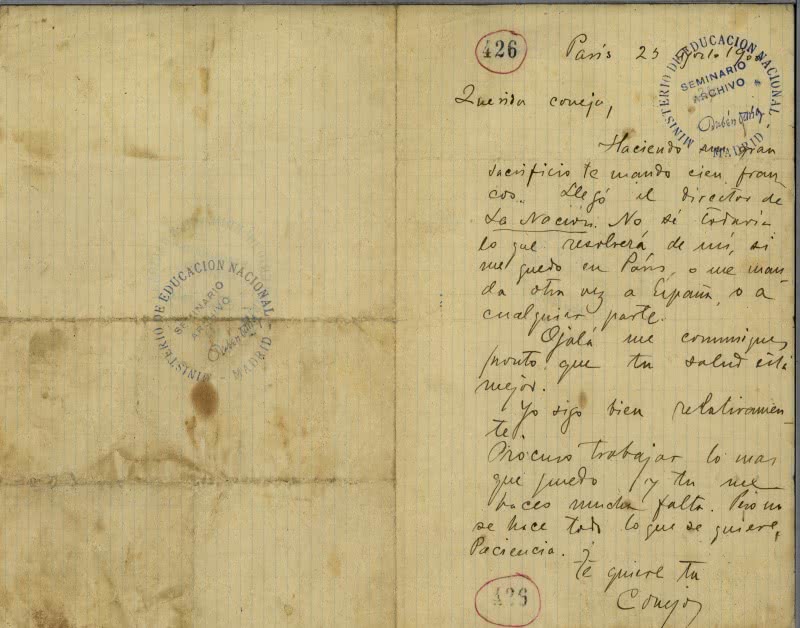 426
París 25 Agosto 1900
MINISTERIO DE EDUCACIÓN NACIONAL
SEMINARIO
ARCHIVO
Rubén Darío
MADRID
Querida coneja,
Haciendo un gran
sacrificio te mando cien fran-
cos. Llegó el director de
La Nación. No sé todavía
lo que resolverá de mí, si
me quedo en París, o me man-
da otra vez a España, o a
cualquier parte.
Ojalá me comuniques
pronto que tu salud está
mejor.
Yo sigo bien relativamen-
te.
Procuro trabajar lo mas
que puedo y tu me
haces mucha falta. Pero no
se hace todo lo que se quiere.
Paciencia.
Te quiere tu
Conejo
426
MINISTERIO DE EDUCACIÓN NACIONAL
SEMINARIO
ARCHIVO
Rubén Darío
MADRID